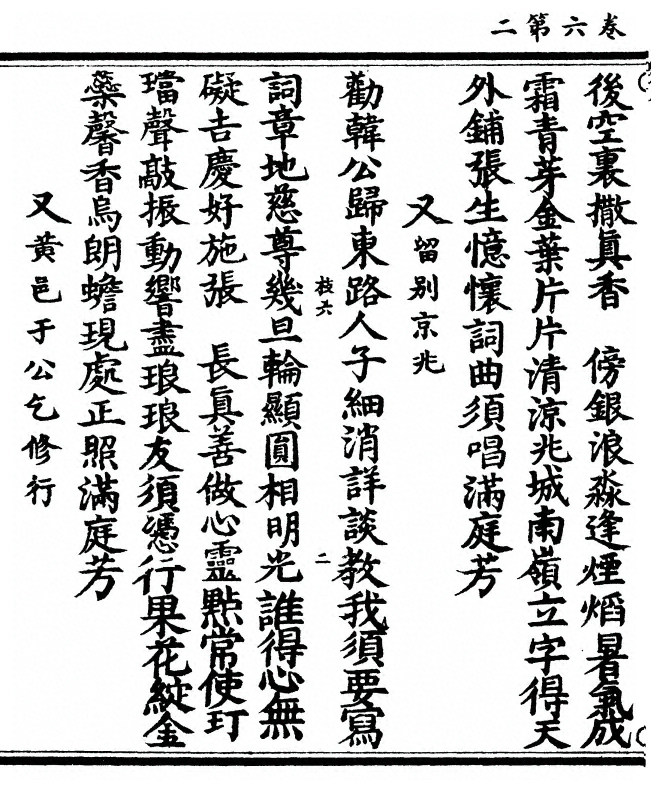 卷六第二
後空裏撒眞香　傍銀浪淼逢煙熖暑氣成
霜青芽金葉片片清涼兆城南嶺立字得天
外鋪張生憶懷詞曲須唱滿庭芳
又留别京兆
勸韓公歸東路人子細消詳談教我須要寫
枝六
二
詞章地慈尊幾旦輪顯圓相明光誰得心無
礙吉慶好施張　長眞善做心靈點常使玎
璫聲敲振動響盡琅琅友須憑行果花綻金
藥馨香烏朗蟾現處正照滿庭芳
又黄邑于公乞修行